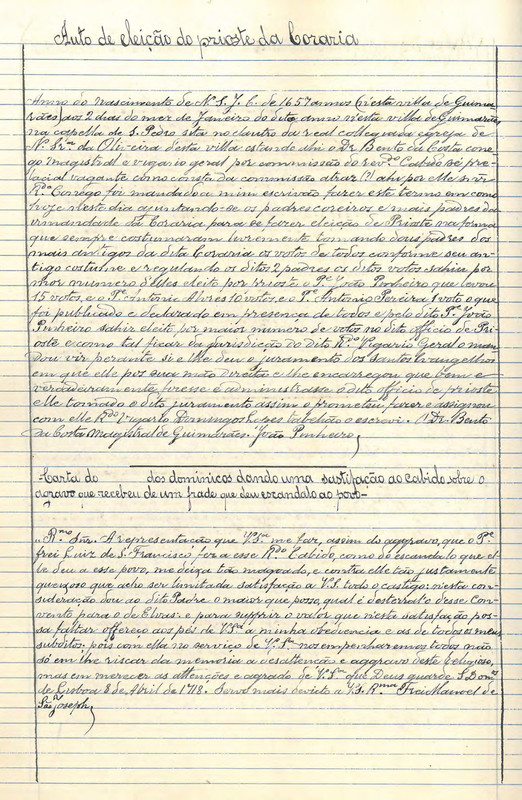 Auto de eleição do prioste da Coraria
Anno do Nascimento de N. S. J. C. de 1657 annos (n'esta villa de Guima-
rães) aos 2 dias do mez de Janeiro do dito anno n'esta villa de Guimarães
na capella de S. Pedro sita no claustro da real collegiada egreja de
N.ª Sr.ª da Oliveira d'esta villa estando ahi o Dr. Bento da Costa cone-
go magistral e vigario geral por commissão do rev.do Cabido sé pre-
lacial vagante como consta da commissão atraz (?) ahi por elle snr.
R.do Conego foi mandado a mim escrivão fazer este termo em como
hoje n'este dia ajuntando-se os padres coreiros e mais padres da
irmandade da Coraria para se fazer eleição de Prioste na forma
que sempre costumaram livremente tomando dous padres dos
mais antigos da dita Coraria os votos de todos conforme seu an-
tigo costume e regulando os ditos 2 padres os ditos votos sahiu por
mor numero d'elles eleito por prioste o P.e João Pinheiro que levou
15 votos, e o P.e Antonio Alvres 10 votos, e o P.e Antonio Pereira 1 voto o que
foi publicado e declarado em presença de todos e pelo dito P.e João
Pinheiro sahir eleito por maior numero de votos no dito officio de Pri-
oste e como tal ficar da jurisdicção do dito R.do Vigario Geral o man-
dou vir perante si e lhe deu o juramento dos santos Evangelhos
em que elle poz sua mão direita e lhe encarregou que bem e
verdadeiramente fizesse e administrasse o dito officio de prioste
elle tomado o dito juramento assim o prometeu fazer e assignou
com elle R.do Vigario Domingos Lopes tabelião o escrevi. O Dr. Bento
da Costa Magistral de Guimarães. João Pinheiro
Carta do dos dominicos dando uma sastifação ao cabido sobre o
agravo que recebeu de um frade que deu escandalo ao povo
"R.mo Snr. A representação que V. S.ª me faz, assim do aggravo, que o P.e
frei Luiz de S. Francisco fez a esse R.do Cabido, como do escandalo que el-
le deu a esse povo, me deixa tão magoado, e contra elle tão justamente
queixoso que acho ser limitada satisfação a V. S. todo o castigo: n'esta con-
sideração dou ao dito Padre o maior que posso, qual é desterral-o d'esse con-
vento para o de Elvas: e para supprir o valor que n'esta satisfação pos-
sa faltar offereço aos pés de V. S.ª a minha obediencia e as de todos os meus
subditos; pois com ella no serviço de V. S.ª nos empenharemos todos não
só em lhe riscar da memoria a desattenção e aggravo deste religioso,
mas em merecer as attenções e agrado de V. S.ª que Deus guarde S. Dom.os
de Lisboa 8 de Abril de 1718. Servo mais devoto a V. S. R.ma Frei Manoel de
São Joseph